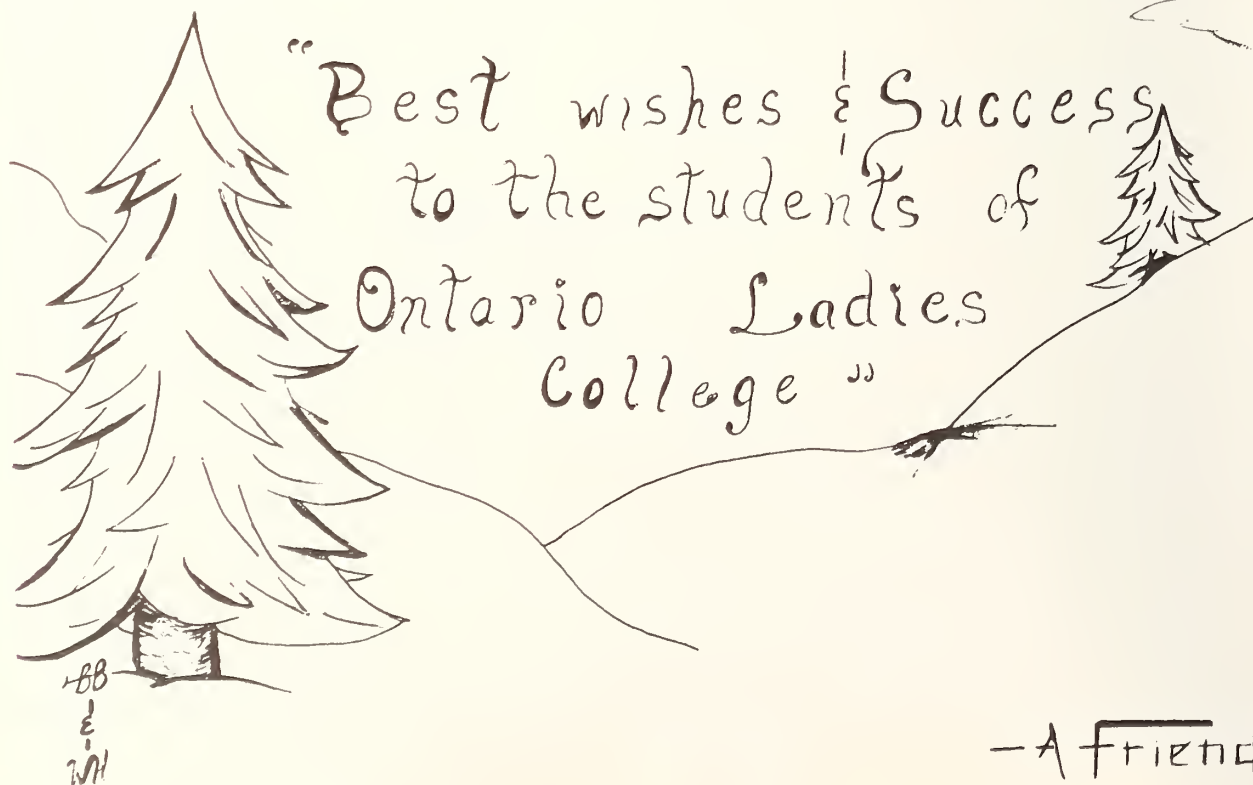 "Best wishes & Success
to the students of
Ontario Ladies
College"
BB
&
WH
-A Friend